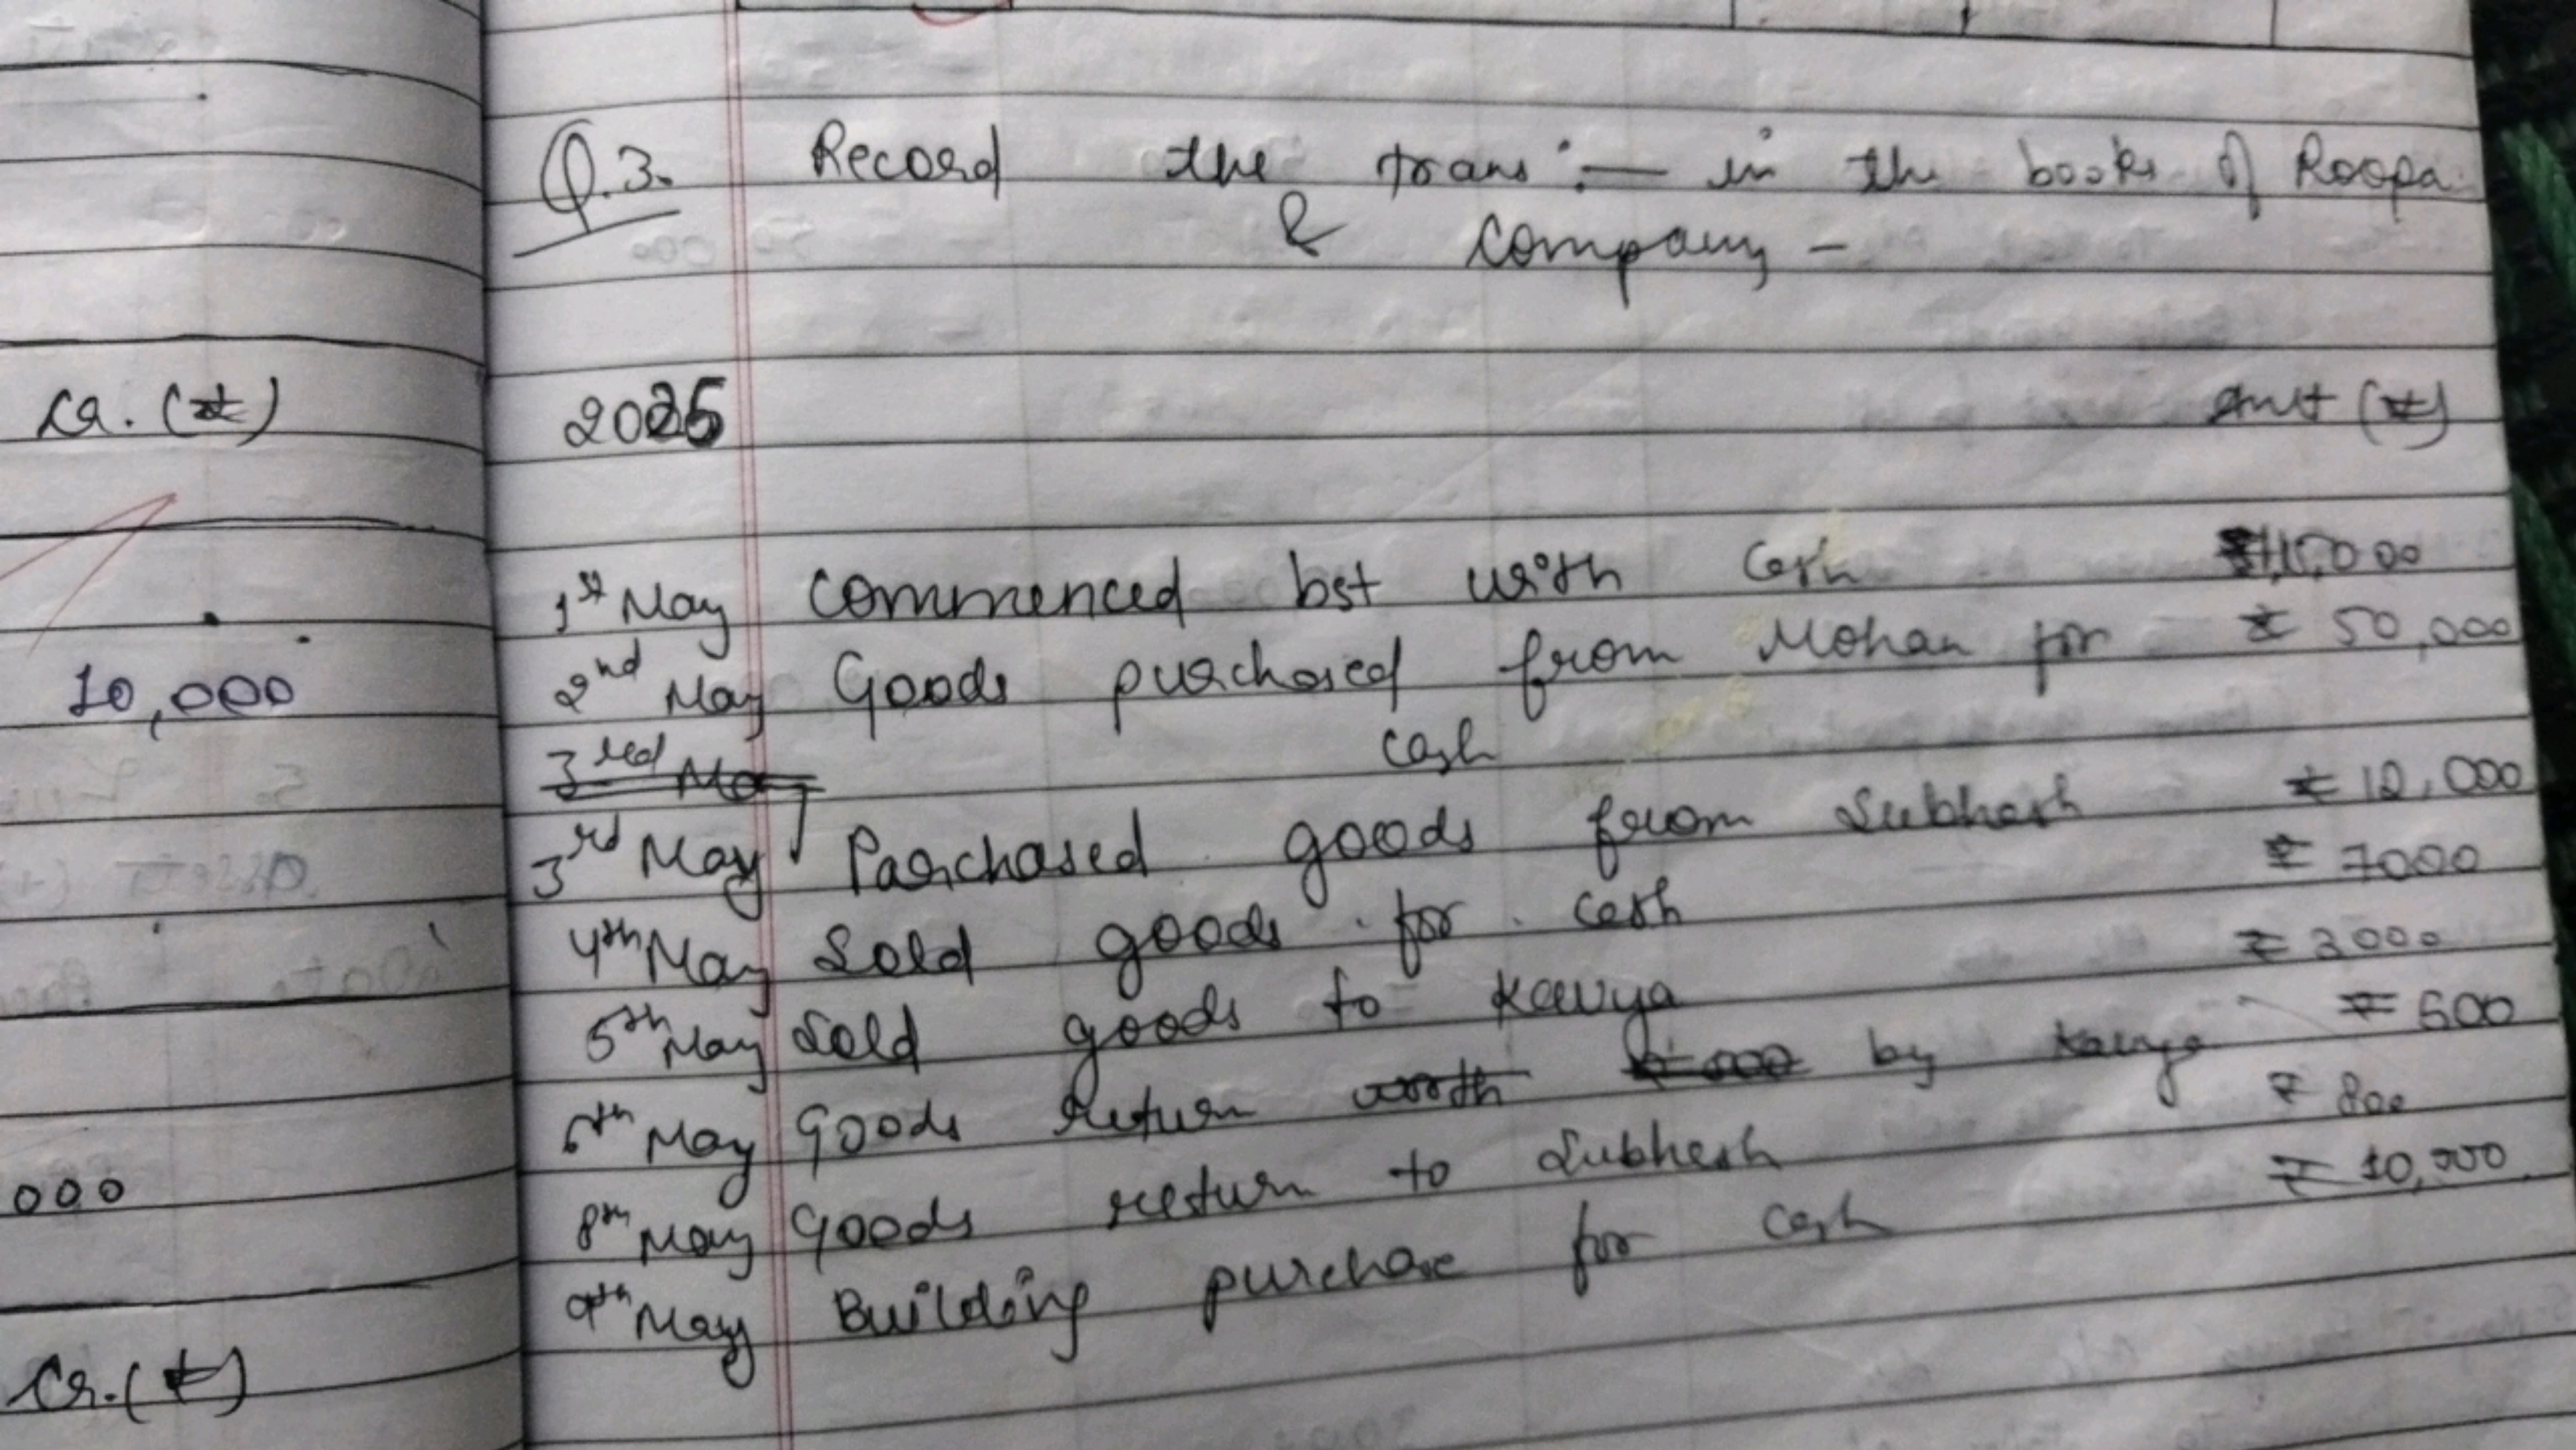 Q.3. Record the trans :— in the books of Roopa
& Company -
Cr. (₹) 2025 Amt (₹)
1st May Commenced bst with Cash
2nd May Goods purchased from Mohan for ₹ 50,000
10,000
cash
3rd May Parchased goods from Subhash ₹ 12,000
4th May Sold goods for cash ₹ 7000
5th May Sold goods to Kavya ₹ 3000
6th May Goods Return by Kavya ₹ 500
8th May Goods return to Subhash ₹ 800
000
9th May Building purchase for cash ₹ 10,000
Cr. (₹)